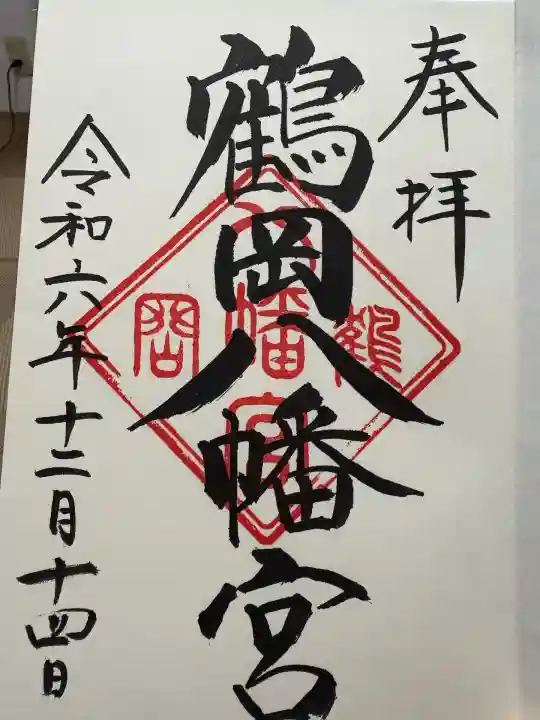 奉拝
鶴岡八幡宮
令和六年十二月十四日
鶴
八幡宮
岡